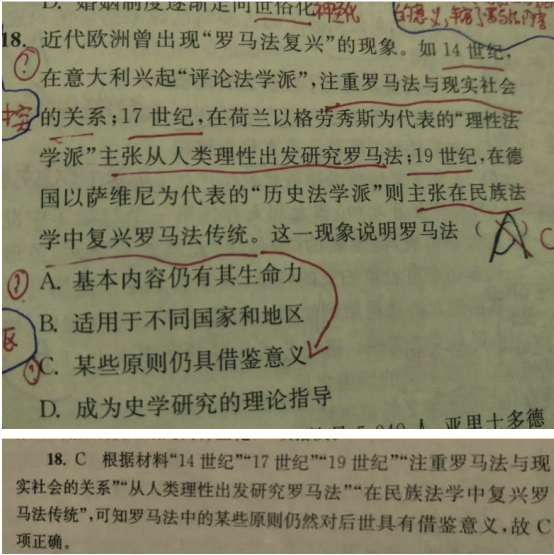 D. 婚姻制度逐渐走向世俗化 神圣化
18. 近代欧洲曾出现“罗马法复兴”的现象。如 14 世纪,
在意大利兴起“评论法学派”,注重罗马法与现实社会
的关系;17 世纪,在荷兰以格劳秀斯为代表的“理性法
学派”主张从人类理性出发研究罗马法;19 世纪,在德
国以萨维尼为代表的“历史法学派”则主张在民族法
学中复兴罗马法传统。这一现象说明罗马法 ( A ) C
? A. 基本内容仍有其生命力
B. 适用于不同国家和地区
C. 某些原则仍具借鉴意义
D. 成为史学研究的理论指导
亚里士多德
18. C 根据材料“14 世纪”“17 世纪”“19 世纪”“注重罗马法与现
实社会的关系”“从人类理性出发研究罗马法”“在民族法学中复兴罗
马法传统”,可知罗马法中的某些原则仍然对后世具有借鉴意义,故 C
项正确。